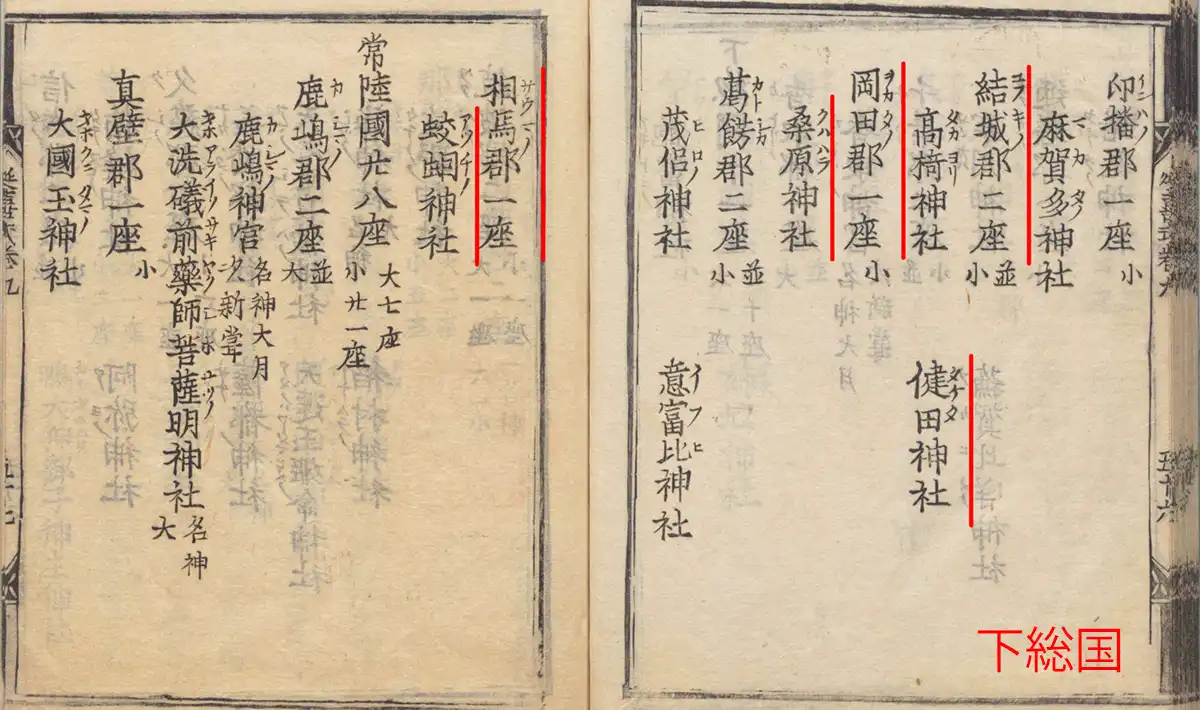 印播郡一座小
麻賀多神社
結城郡二座並小
高椅神社
健田神社
岡田郡一座小
桑原神社
葛餝郡二座並小
茂侶神社
意富比神社
相馬郡一座小
蛟蝄神社
常陸國廿八座大七座小廿一座
鹿嶋郡二座並大
鹿嶋神宮名神大月次新嘗
大洗礒前藥師菩薩明神社名神大
真壁郡一座小
大國玉神社
下総国